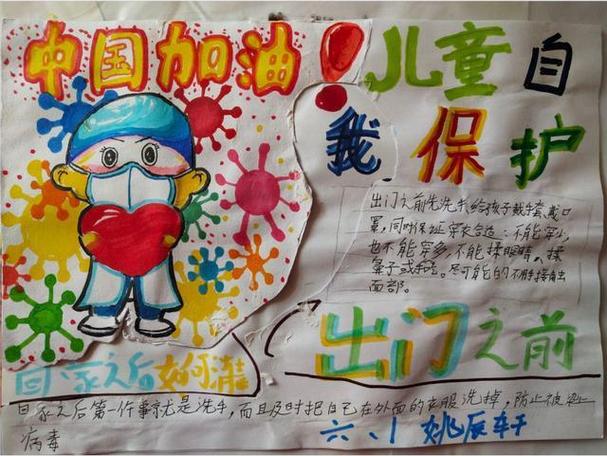 中国加油！
儿童自
我保护
出门之前先洗手给孩子戴手套、戴口
罩，同时保证穿衣合适：不能穿少，
也不能穿多，不能揉眼睛、揉
鼻子或 尽可能的不用手接触
面部。
出门之前
回家之后如何清洁
回家之后第一件事就是洗手，而且及时把自己在外面的衣服洗掉，防止被染上
病毒
六、1 姚辰轩